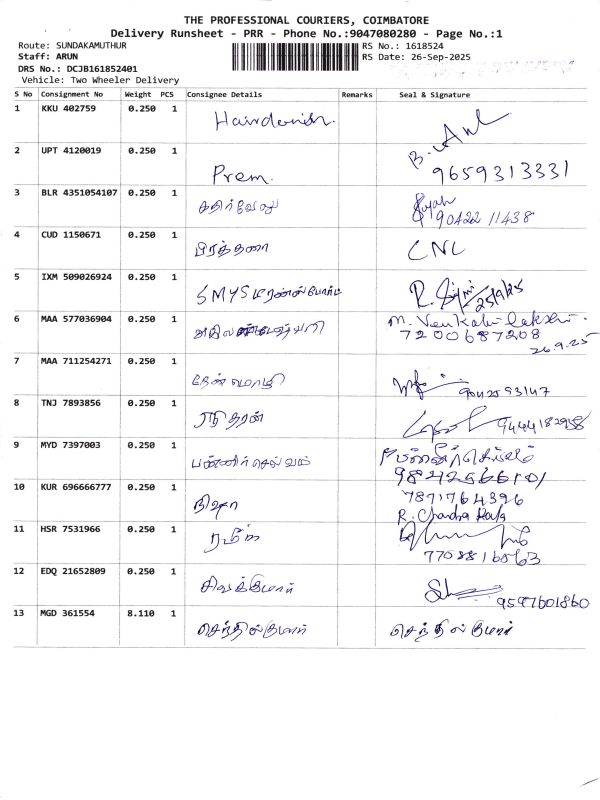 THE PROFESSIONAL COURIERS, COIMBATORE
Delivery Runsheet - PRR - Phone No.:9047080280 - Page No.:1
Route: SUNDAKAMUTHUR
RS No.: 1618524
Staff: ARUN
RS Date: 26-Sep-2025
DRS No.: DCJB161852401
Vehicle: Two Wheeler Delivery
S No Consignment No Weight PCS Consignee Details Remarks Seal & Signature
1 KKU 402759 0.250 1
2 UPT 4120019 0.250 1 Prem. 9659313331
3 BLR 4351054107 0.250 1 கதிர்வேலு 90422 11438
4 CUD 1150671 0.250 1 பிரத்தனா CNC
5 IXM 509026924 0.250 1 SMYS டிரான்ஸ்போர்ட் 25/9/25
6 MAA 577036904 0.250 1 M. Venkatalakshmi.
7200687208
26.9.25
7 MAA 711254271 0.250 1 தேன்மொழி 9042593147
8 TNJ 7893856 0.250 1 ஸ்ரீதரன் 9444182958
9 MYD 7397003 0.250 1 பன்னீர் செல்வம் பன்னீர்செல்வம்
10 KUR 696666777 0.250 1 நிஷா 7871764396
R. Chandra Kala
11 HSR 7531966 0.250 1
12 EDQ 21652809 0.250 1 சிவக்குமார் 9597601860
13 MGD 361554 8.110 1 செந்தில்குமார் செந்தில்குமார்